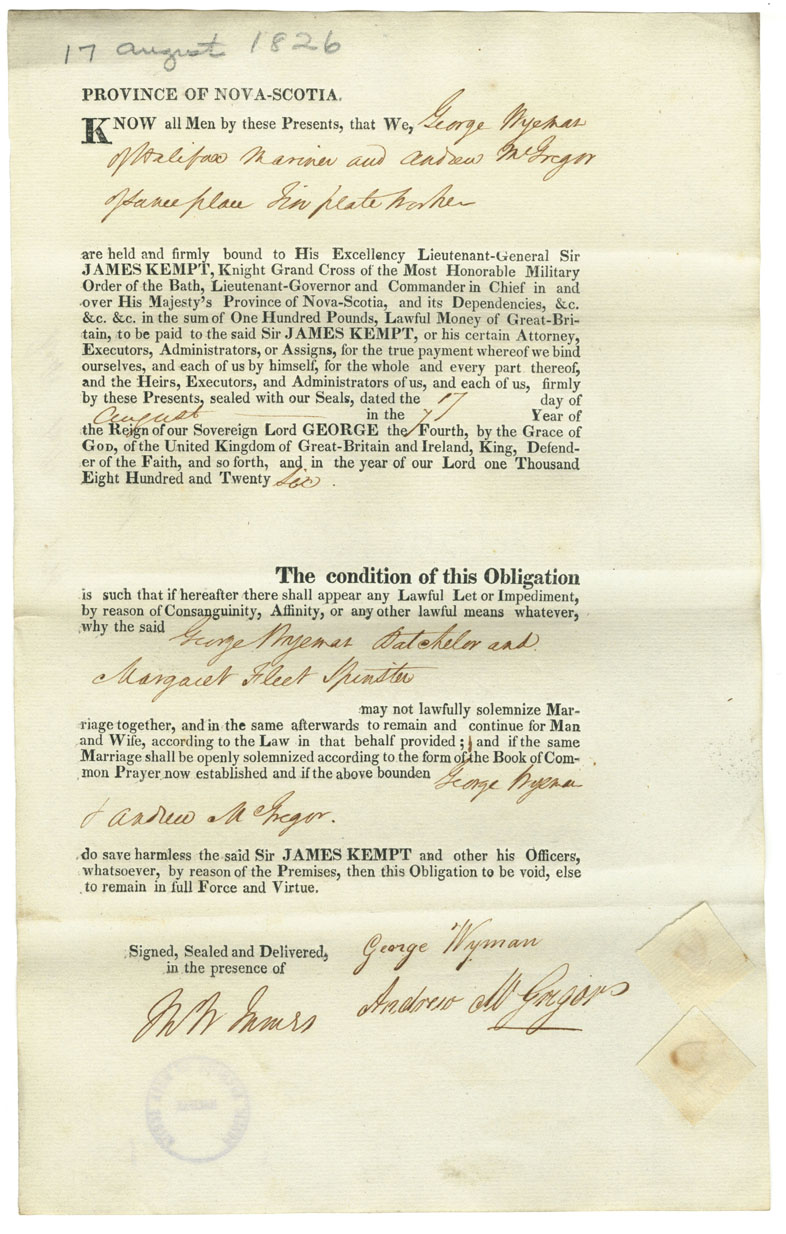 17 August 1826
PROVINCE OF NOVA-SCOTIA.
KNOW all Men by these Presents, that We, George Wyeman
of Halifax Mariner and Andrew McGregor
of same place Tin plate worker
are held and firmly bound to His Excellency Lieutenant-General Sir
JAMES KEMPT, Knight Grand Cross of the Most Honorable Military
Order of the Bath, Lieutenant-Governor and Commander in Chief in and
over His Majesty's Province of Nova-Scotia, and its Dependencies, &c.
&c. &c. in the sum of One Hundred Pounds, Lawful Money of Great-Bri-
tain, to be paid to the said Sir JAMES KEMPT, or his certain Attorney,
Executors, Administrators, or Assigns, for the true payment whereof we bind
ourselves, and each of us by himself, for the whole and every part thereof,
and the Heirs, Executors, and Administrators of us, and each of us, firmly
by these Presents, sealed with our Seals, dated the 17 day of
August in the 7 Year of
the Reign of our Sovereign Lord GEORGE the Fourth, by the Grace of
GOD, of the United Kingdom of Great-Britain and Ireland, King, Defend-
er of the Faith, and so forth, and in the year of our Lord one Thousand
Eight Hundred and Twenty Six.
The condition of this Obligation
is such that if hereafter there shall appear any Lawful Let or Impediment,
by reason of Consanguinity, Affinity, or any other lawful means whatever,
why the said George Wyeman Batchelor and
Margaret Fleet Spinster
may not lawfully solemnize Mar-
riage together, and in the same afterwards to remain and continue for Man
and Wife, according to the Law in that behalf provided; and if the same
Marriage shall be openly solemnized according to the form of the Book of Com-
mon Prayer now established and if the above bounden George Wyeman
& Andrew McGregor.
do save harmless the said Sir JAMES KEMPT and other his Officers,
whatsoever, by reason of the Premises, then this Obligation to be void, else
to remain in full Force and Virtue.
Signed, Sealed and Delivered,
in the presence of
George Wyman
Andrew McGregor